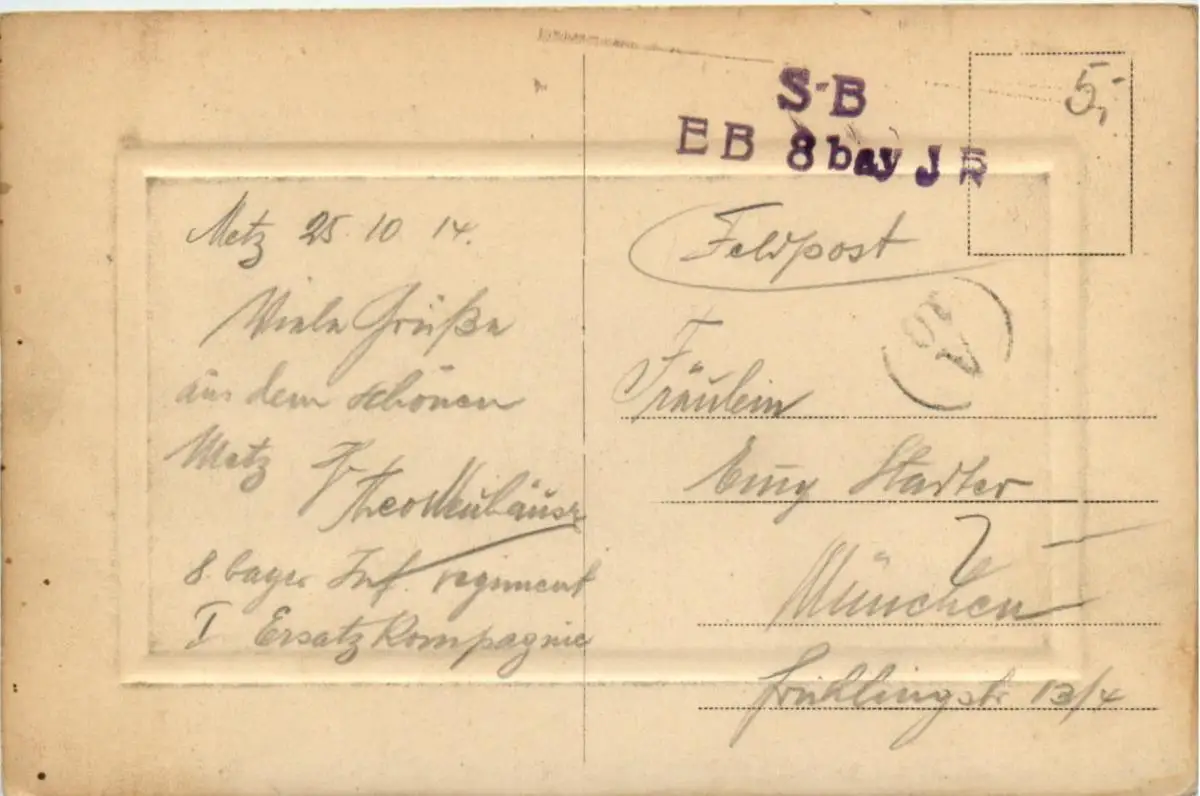 S-B
EB 8 bay J R
5,-
Metz 25 10 14.
Viele Grüße
aus dem schönen
Metz
8. bayer Inf. regiment
I Ersatz Kompagnie
Feldpost
Fräulein
Stadter
München
Frühlingstr 13/4